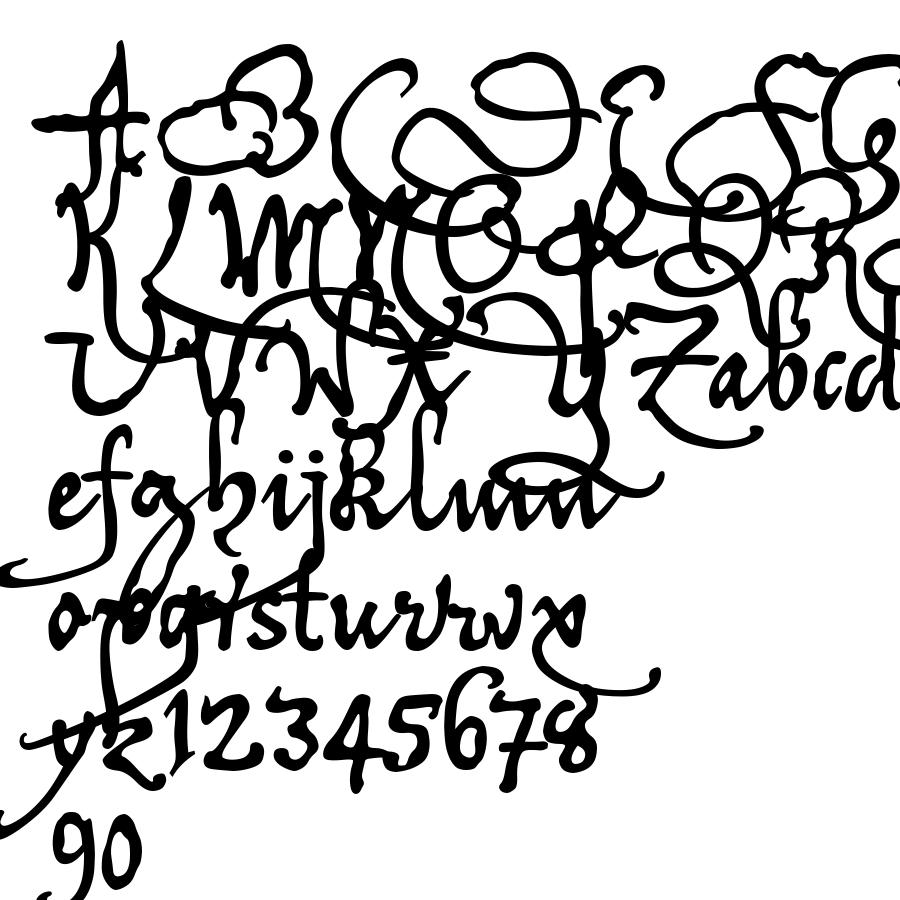 ABCDEFG
KLMNOPQRS
UVWXYZabcd
efghijklmn
opqrstuvwx
yz12345678
90